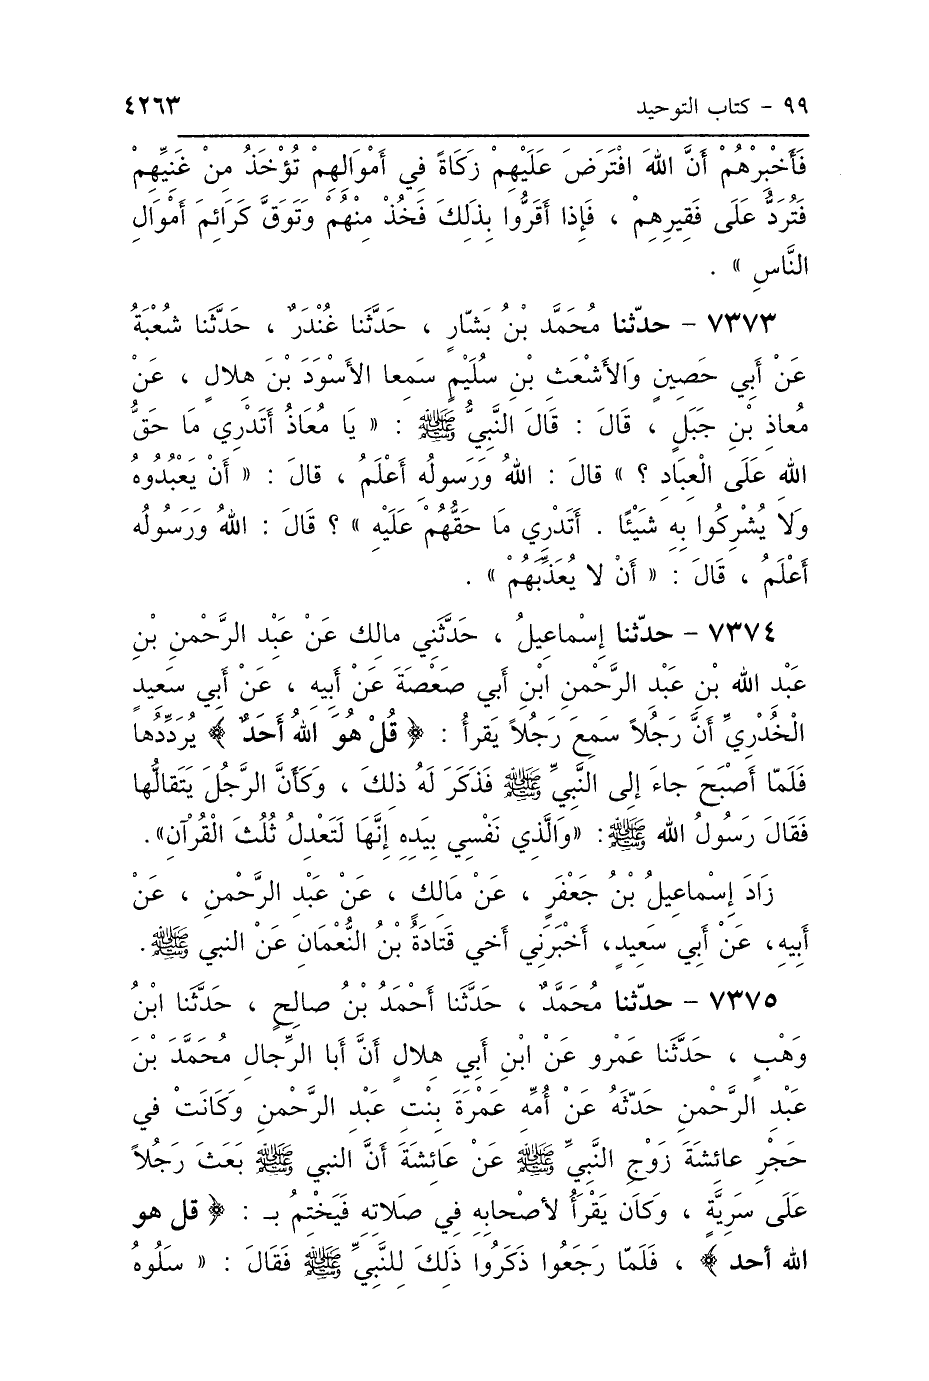 ٩٩ - كتاب التوحيد ٤٢٦٣
فَأَخْبِرْهُمْ أَنَّ اللهَ افْتَرَضَ عَلَيْهِمْ زَكَاةً فِي أَمْوَالِهِمْ تُؤْخَذُ مِنْ غَنِيِّهِمْ
فَتُرَدُّ عَلَى فَقِيرِهِمْ ، فَإِذا أَقَرُّوا بِذَلِكَ فَخُذْ مِنْهُمْ وَتَوَقَّ كَرَائِمَ أَمْوَالِ
النَّاسِ » .
٧٣٧٣ - حدّثنا مُحَمَّد بْنُ بَشّارٍ ، حَدَّثَنا غُنْدَرٌ ، حَدَّثَنا شُعْبَةُ
عَنْ أَبِي حَصِينٍ وَالأَشْعَثِ بْنِ سُلَيْمٍ سَمِعا الأَسْوَدَ بْنَ هِلالٍ ، عَنْ
مُعاذِ بْنِ جَبَلٍ ، قَالَ : قَالَ النَّبِيُّ ﷺ : « يَا مُعَاذُ أَتَدْرِي مَا حَقُّ
اللهِ عَلَى الْعِبَادِ ؟ » قالَ : اللهُ وَرَسولُه أَعْلَمُ ، قالَ : « أَنْ يَعْبُدُوهُ
وَلَا يُشْرِكُوا بِهِ شَيْئًا . أَتَدْرِي مَا حَقُّهُمْ عَلَيْهِ » ؟ قَالَ : اللهُ وَرَسُولُه
أَعْلَمُ ، قَالَ : « أَنْ لا يُعَذِّبَهُمْ » .
٧٣٧٤ - حدّثنا إسْماعيلُ ، حَدَّثَنِي مالك عَنْ عَبْدِ الرَّحْمنِ بْنِ
عَبْدِ اللهِ بْنِ عَبْدِ الرَّحْمنِ ابْنِ أَبِي صَعْصَةَ عَنْ أَبِيهِ ، عَنْ أَبِي سَعِيدٍ
الْخُدْرِيِّ أَنَّ رَجُلاً سَمِعَ رَجُلاً يَقرأُ : ﴿ قُلْ هُوَ اللهُ أَحَدٌ ﴾ يُرَدِّدُها
فَلَمّا أَصْبَحَ جاءَ إلى النَّبِيِّ ﷺ فَذَكَرَ لَهُ ذلِكَ ، وَكَأَنَّ الرَّجُلَ يَتَقالُّها
فَقَالَ رَسُولُ اللهِ ﷺ: «وَالَّذِي نَفْسِي بِيَدِهِ إنَّهَا لَتَعْدِلُ ثُلُثَ الْقُرْآنِ».
زَادَ إِسْماعيلُ بْنُ جَعْفَرٍ ، عَنْ مَالِكٍ ، عَنْ عَبْدِ الرَّحْمنِ ، عَنْ
أَبِيهِ، عَنْ أَبِي سَعِيدٍ، أَخْبَرَنِي أَخي قَتَادَةُ بْنُ النُّعْمَانِ عَنْ النبي ﷺ.
٧٣٧٥ - حدّثنا مُحَمَّدٌ ، حَدَّثَنَا أَحْمَدُ بْنُ صالِحٍ ، حَدَّثَنا ابْنُ
وَهْبٍ ، حَدَّثَنا عَمْرو عَنْ ابْنِ أَبِي هِلالٍ أَنَّ أَبا الرِّجالِ مُحَمَّدَ بْنَ
عَبْدِ الرَّحْمنِ حَدّثَهُ عَنْ أُمِّهِ عَمْرَةَ بِنْتِ عَبْدِ الرَّحْمنِ وَكَانَتْ في
حَجْرِ عائِشَةَ زَوْجِ النَّبِيِّ ﷺ عَنْ عَائِشَةَ أَنَّ النبي ﷺ بَعَثَ رَجُلاً
عَلَى سَرِيَّةٍ ، وَكَان يَقْرَأُ لأصْحابِهِ فِي صَلاتِهِ فَيَخْتِمُ بـ : ﴿ قل هو
الله أحد ﴾ ، فَلَمّا رَجَعُوا ذَكَرُوا ذَلِكَ لِلنَّبِيِّ ﷺ فَقَالَ : « سَلُوهُ